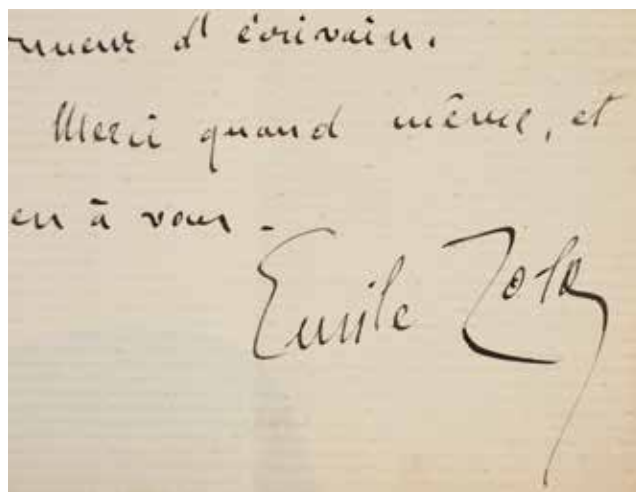 nneur d'écrivain.
Merci quand même, et
en à vous.
Emile Zola